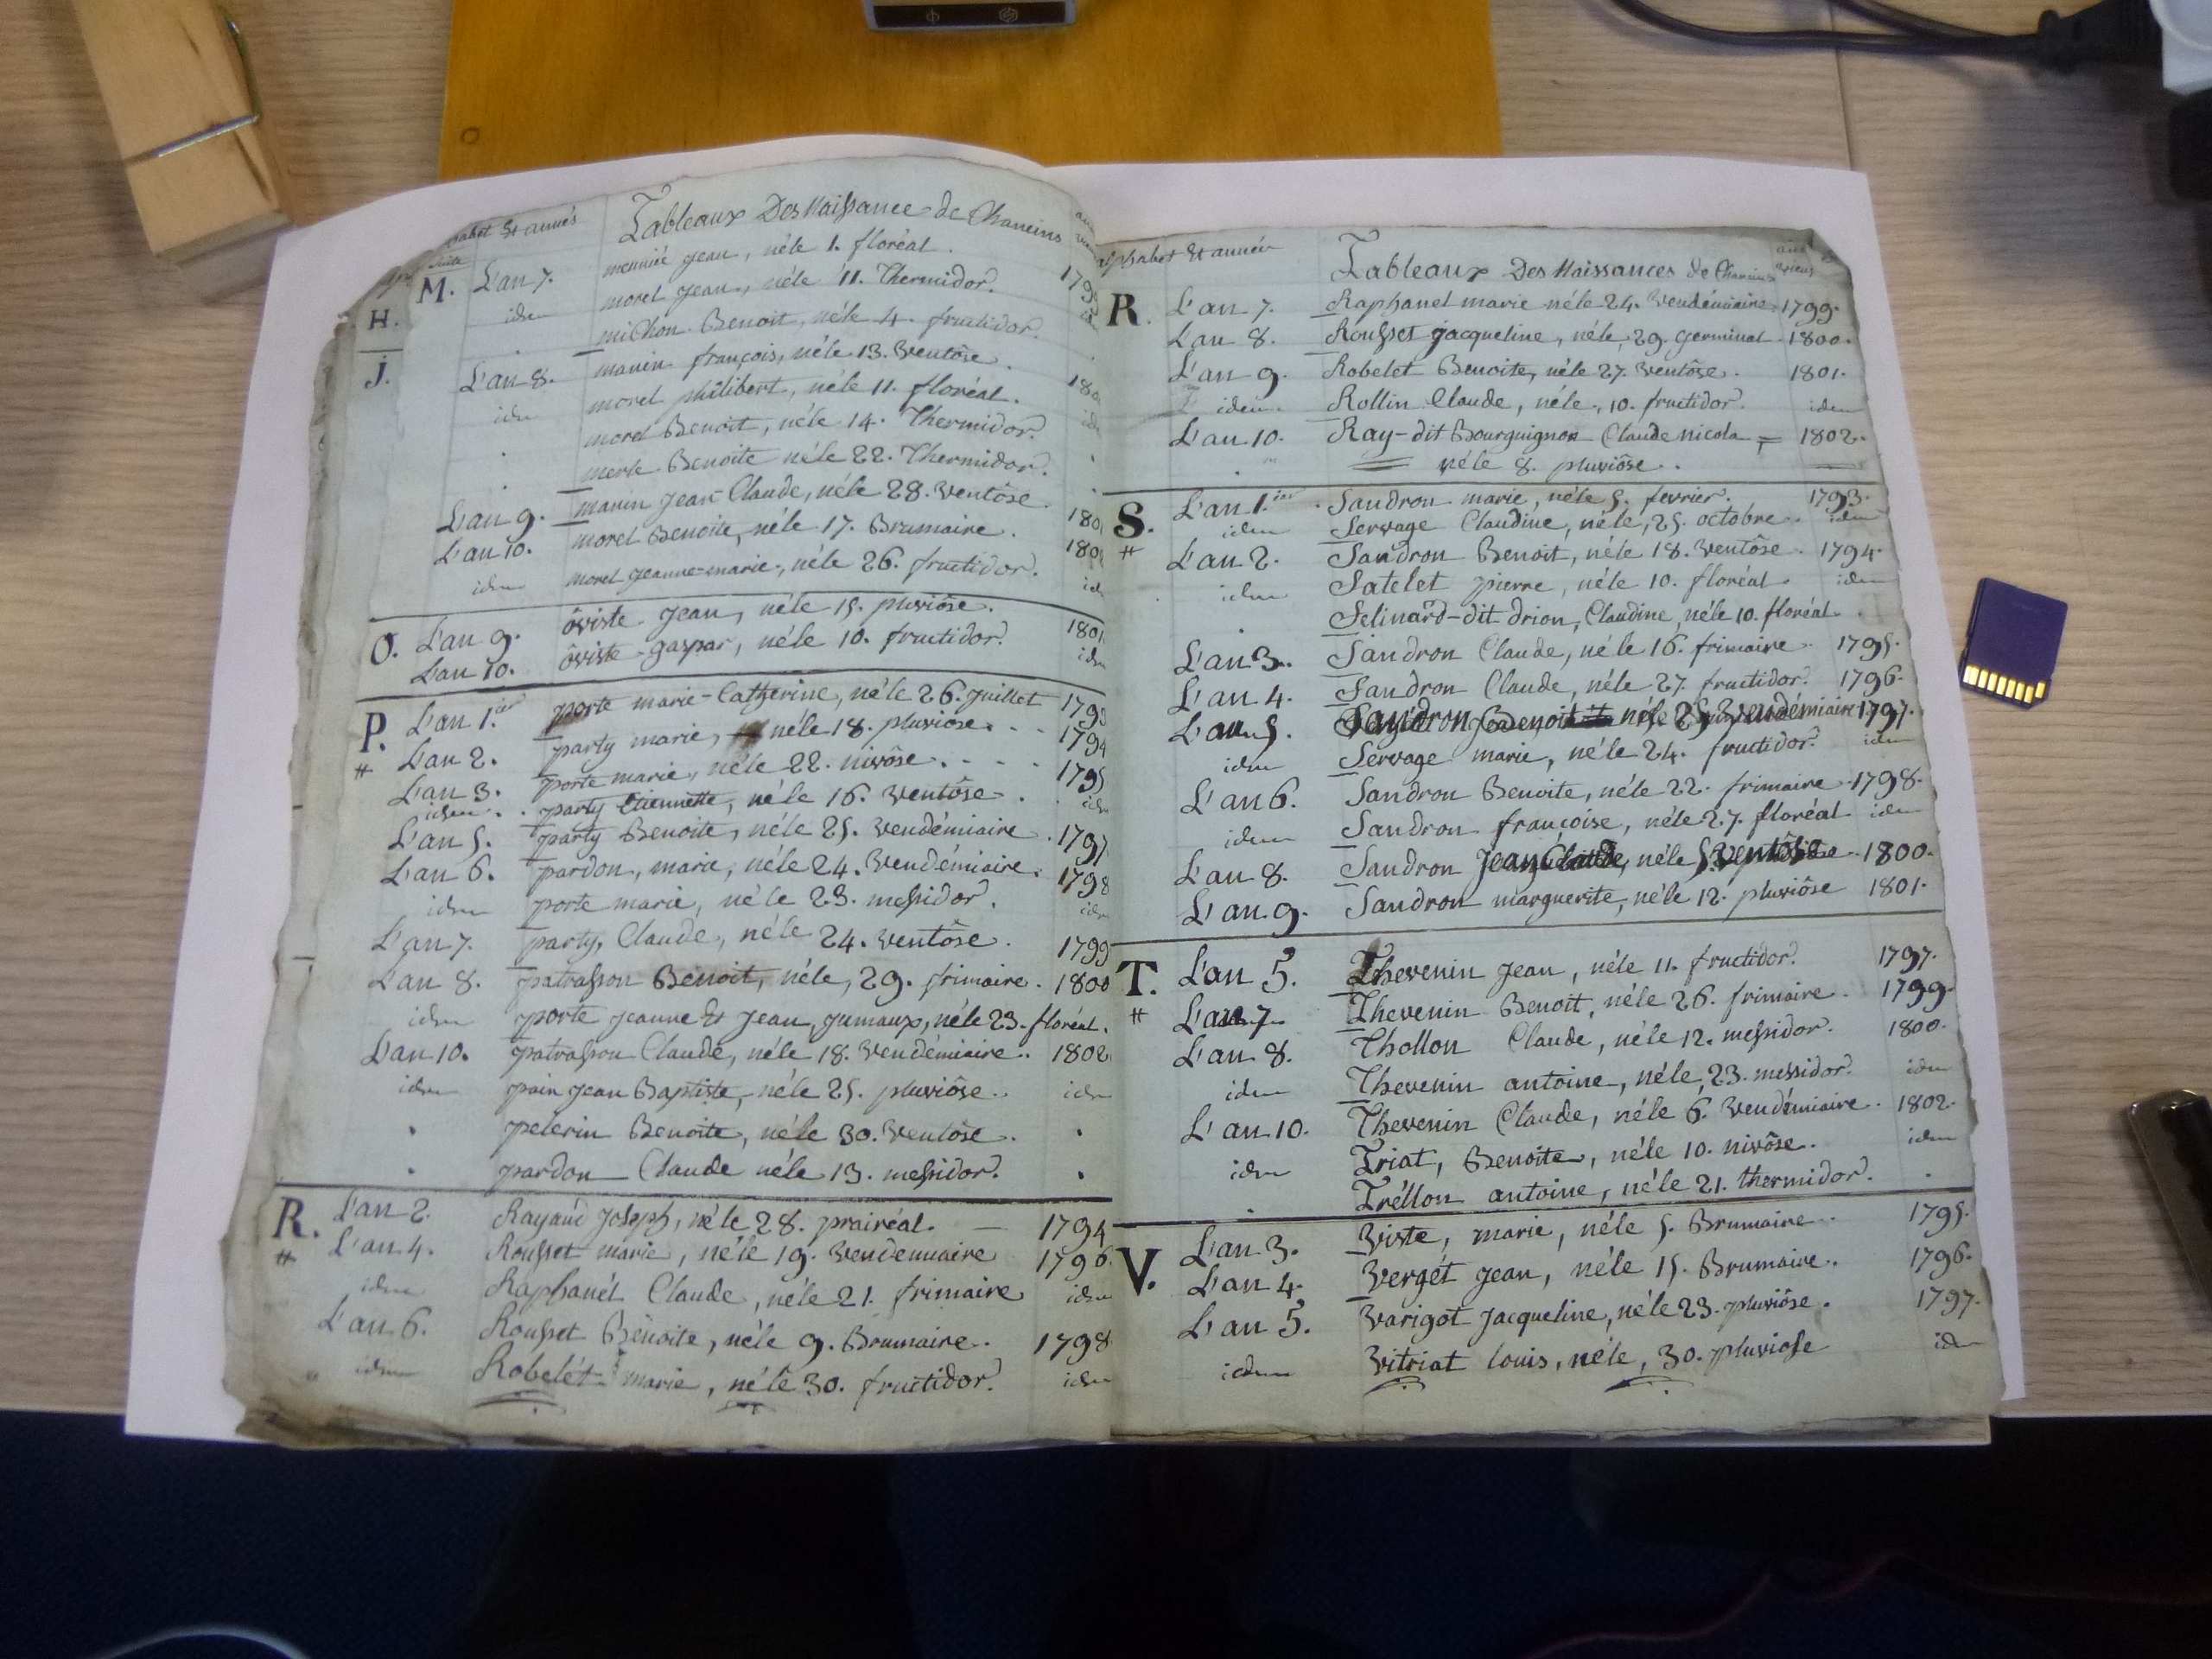 Tableaux Des Naissance de Chaneins
suite
M. L'an 7. meunié jean, né le 1. floréal.
iden morel jean, né le 11. Thermidor.
michon Benoit, né le 4. fructidor.
H.
J.
L'an 8. manin françois, né le 13. Ventôse.
iden morel philibert, né le 11. floréal.
morel Benoit, né le 14. Thermidor.
merle Benoite né le 22. Thermidor.
L'an 9. manin jean-Claude, né le 28. Ventôse.
L'an 10. morel Benoite, né le 17. Brumaire.
iden morel jeanne-marie, né le 26. fructidor.
O. L'an 9. ôviste jean, né le 15. pluviôse.
L'an 10. ôviste gaspar, né le 10. fructidor. iden
P. L'an 1.ier porte marie-Catherine, né le 26. juillet
L'an 2. party marie, né le 18. pluviose. 1794
L'an 3. porte marie, né le 22. nivôse. 1795
iden party Etiennette, né le 16. Ventôse. iden
L'an 5. party Benoite, né le 25. Vendémiaire. 1797
L'an 6. pardon, marie, né le 24. Vendémiaire. 1798
iden porte marie, né le 23. messidor. iden
L'an 7. party, Claude, né le 24. Ventôse. 1799
L'an 8. patrasson Benoit, né le, 29. frimaire. 1800
iden porte jeanne & jean, jumaux, né le 23. floréal.
L'an 10. patrasson Claude, né le 18. Vendémiaire. 1802
iden pain jean Baptiste, né le 25. pluviôse. iden
pelerin Benoite, né le 30. Ventôse.
pardon Claude né le 13. messidor.
R. L'an 2. Rayaud joseph, né le 28. prairéal. 1794
L'an 4. Rousset marie, né le 19. Vendemiaire 1796.
iden Raphanél Claude, né le 21. frimaire iden
L'an 6. Rousset Benoite, né le 9. Brumaire. 1798
iden Robelét marie, né le 30. fructidor. iden
Tableaux Des Naissances de Chaneins
R. L'an 7. Raphanel marie né le 24. Vendémiaire. 1799.
L'an 8. Rousset jacqueline, né le, 29. germinal 1800.
L'an 9. Robelet Benoite, né le 27. Ventôse. 1801.
iden Rollin Claude, né le, 10. fructidor. iden
L'an 10. Ray-dit Bourguignon Claude nicola = 1802.
né le 8. pluviôse.
S. L'an 1.ier Sandron marie, né le 5. fevrier. 1793.
iden Servage Claudine, né le, 25. octobre. iden
L'an 2. Sandron Benoit, né le 18. Ventôse. 1794.
iden Satelet pierre, né le 10. floréal. iden
Selinard-dit Drion, Claudine, né le 10. floréal.
L'an 3. Sandron Claude, né le 16. frimaire. 1795.
L'an 4. Sandron Claude, né le 27. fructidor. 1796.
L'an 5. Sandron Benoit né le 25 Vendémiaire 1797.
iden Servage marie, né le 24. fructidor. iden
L'an 6. Sandron Benoite, né le 22. frimaire 1798.
iden Sandron françoise, né le 27. floréal iden
L'an 8. Sandron Jean Claude, né le 5. Ventôse 1800.
L'an 9. Sandron marguerite, né le 12. pluviôse 1801.
T. L'an 5. Thevenin jean, né le 11. fructidor. 1797.
L'an 7 Thevenin Benoit, né le 26. frimaire. 1799.
L'an 8. Thollon Claude, né le 12. messidor. 1800.
iden Thevenin antoine, né le, 23. messidor. iden
L'an 10. Thevenin Claude, né le 6. Vendémiaire. 1802.
iden Triat, Benoite, né le 10. nivôse. iden
Tréllon antoine, né le 21. thermidor.
V. L'an 3. Viste, marie, né le 5. Brumaire. 1795.
L'an 4. Vergét jean, né le 15. Brumaire. 1796.
L'an 5. Varigot jacqueline, né le 23. pluviôse. 1797.
iden Vitriat louis, né le, 30. pluviose iden